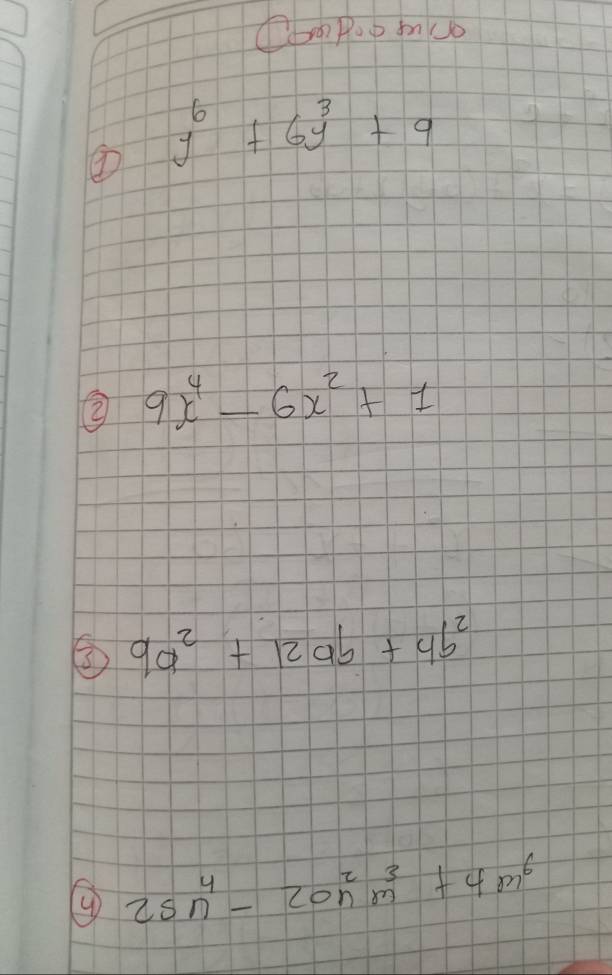 ① y⁶ + 6y³ + 9
② 9x⁴ - 6x² + 1
③ 9a² + 12ab + 4b²
④ 25n⁴ - 20n²m³ + 4m⁶